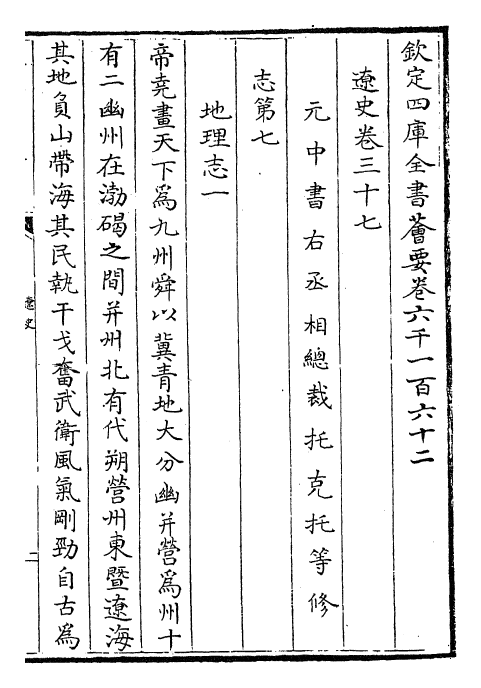 欽定四庫全書薈要卷六千一百六十二
遼史卷三十七
元中書右丞相總裁托克托等修
志第七
地理志一
帝堯畫天下爲九州舜以冀青地大分幽并營爲州十
有二幽州在渤碣之間并州北有代朔營州東暨遼海
其地負山帶海其民執干戈奮武衛風氣剛勁自古爲
遼史
二